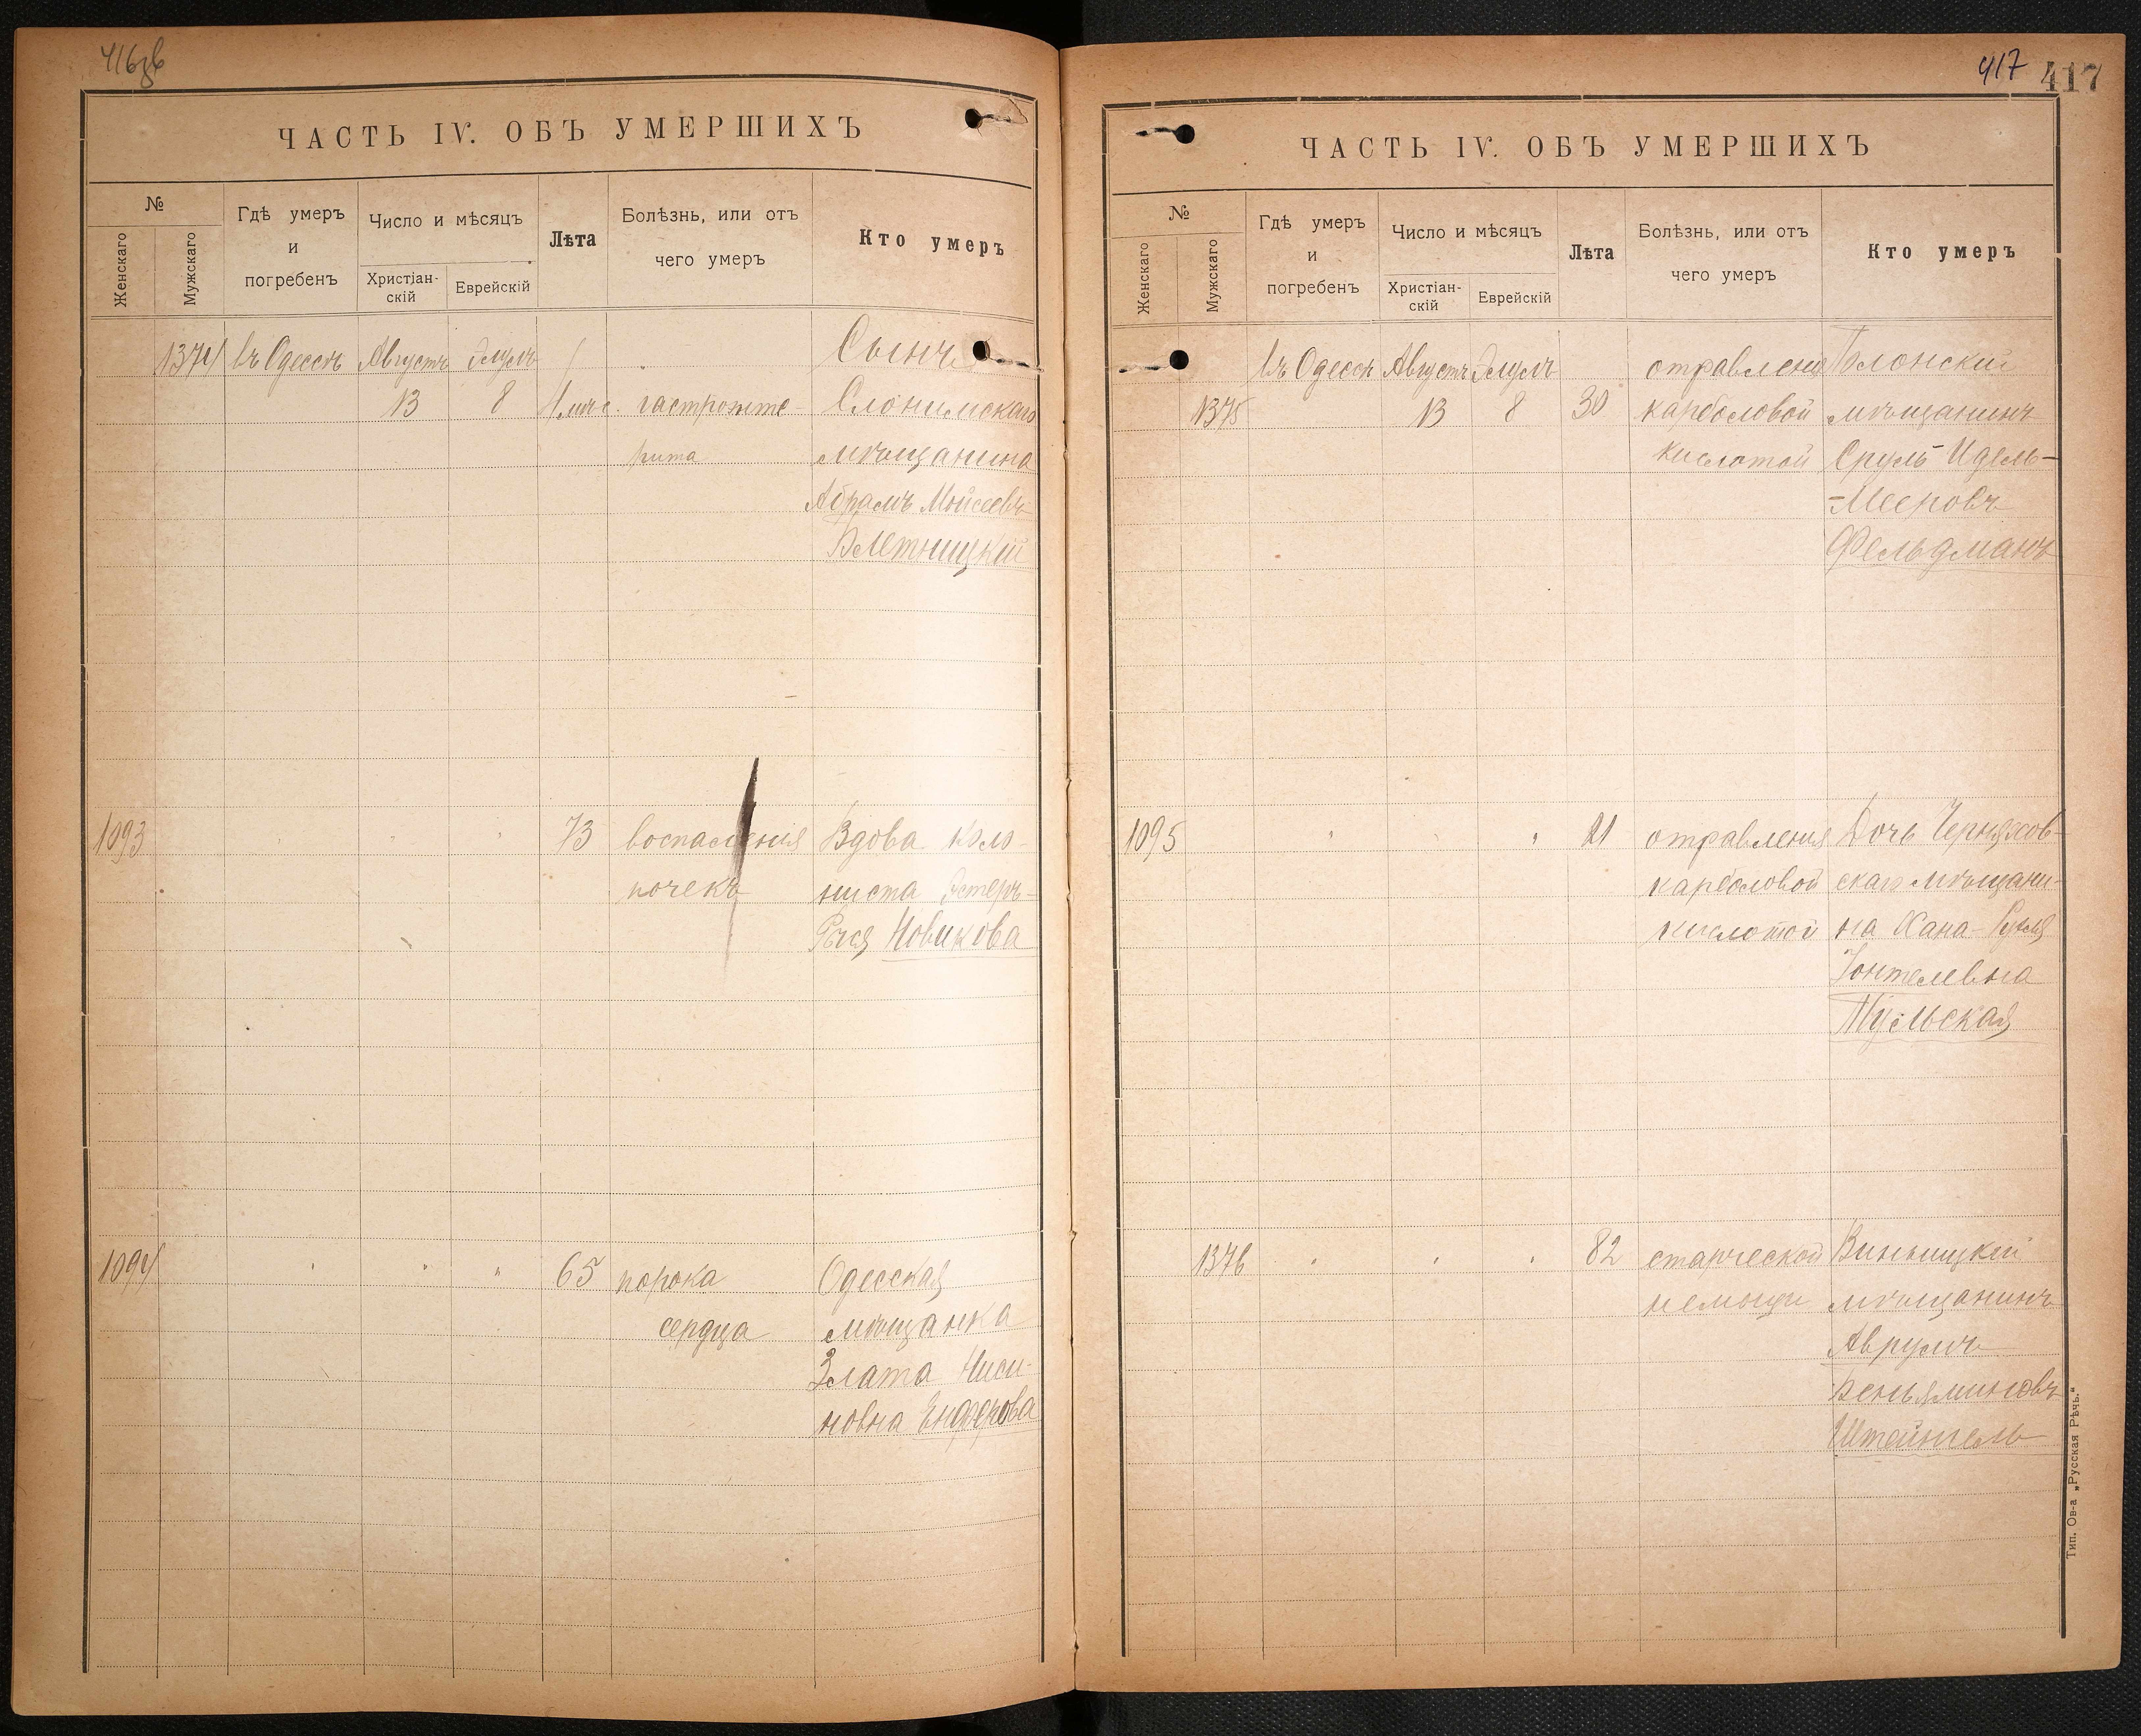 416зв
ЧАСТЬ IV. ОБЪ УМЕРШИХЪ
№
Женскаго
Мужскаго
Гдѣ умеръ
и
погребенъ
Число и мѣсяцъ
Христіан-
скій
Еврейскій
Лѣта
Болѣзнь, или отъ
чего умеръ
Кто умеръ
1374 въ Одессѣ Августъ Элулъ Сынъ
13 8 1 мѣс. гастроэнте- Слонимскаго
рита мѣщанина
Абрамъ Мойсеевъ
Влетницкій
1093 " " " 73 воспаленія Вдова коло-
почекъ ниста Эстеръ-
Рыся Новикова
1094 " " " 65 порока Одесская
сердца мѣщанка
Злата Ниси-
новна Ендерова
417 417
ЧАСТЬ IV. ОБЪ УМЕРШИХЪ
№
Женскаго
Мужскаго
Гдѣ умеръ
и
погребенъ
Число и мѣсяцъ
Христіан-
скій
Еврейскій
Лѣта
Болѣзнь, или отъ
чего умеръ
Кто умеръ
въ Одессѣ Августъ Элулъ отравленія
1375 13 8 30 карболовой мѣщанинъ
кислотой Сруль-Идель-
-Мееровъ
Фельдманъ
1095 " " " 21 отравленія Дочь Черняхов-
карболовой скаго мѣщани-
кислотой на Хана-
Іонтелевна
Тульская
1376 " " " 82 старческой Винницкій
немощи мѣщанинъ
Аврумъ
Веньяминовъ
Штейнгель
Тип. Ов-а „Русская Рѣчь."